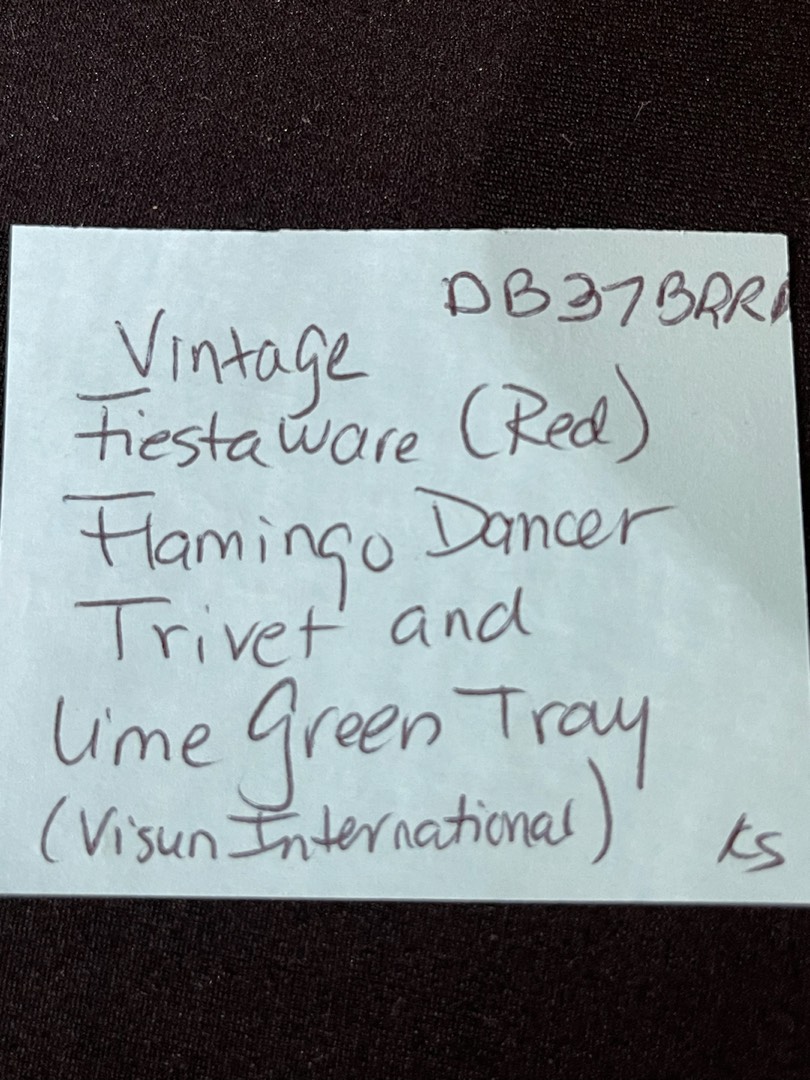 DB37BRR
Vintage
Fiestaware (Red)
Flamingo Dancer
Trivet and
Lime Green Tray
(Visun International)
KS